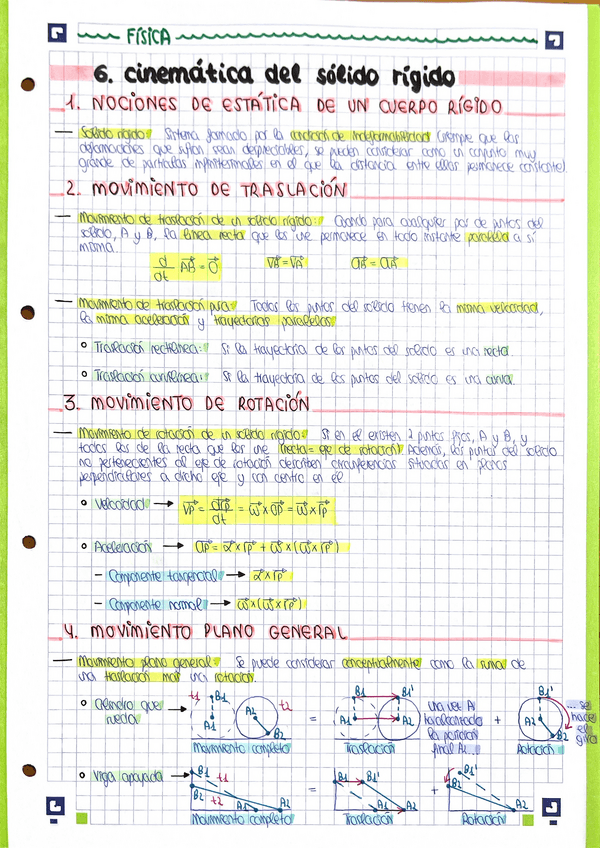 FÍSICA
6. cinemática del sólido rígido
1. NOCIONES DE ESTÁTICA DE UN CUERPO RÍGIDO
— Sólido rígido: Sistema formado por la condición de indeformabilidad (siempre que las
deformaciones que sufran sean despreciables, se pueden considerar como un conjunto muy
grande de partículas infinitesimales en el que la distancia entre ellas permanece constante).
2. MOVIMIENTO DE TRASLACIÓN
— Movimiento de traslación de un sólido rígido: Cuando para cualquier par de puntos del
sólido, A y B, la línea recta que los une permanece en todo instante paralela a sí
misma.
d/dt AB = 0 VB = VA aB = aA
— Movimiento de traslación pura: Todos los puntos del sólido tienen la misma velocidad,
la misma aceleración y trayectorias paralelas.
° Traslación rectilínea: Si la trayectoria de los puntos del sólido es una recta.
° Traslación curvilínea: Si la trayectoria de los puntos del sólido es una curva.
3. MOVIMIENTO DE ROTACIÓN
— Movimiento de rotación de un sólido rígido: Si en él existen 2 puntos fijos, A y B, y
todos los de la recta que los une (recta = eje de rotación). Además, los puntos del sólido
no pertenecientes al eje de rotación describen circunferencias situadas en planos
perpendiculares a dicho eje y con centro en él.
° Velocidad → VP = drP/dt = ω x OP = ω x rP
° Aceleración → aP = α x rP + ω x (ω x rP)
– Componente tangencial → α x rP
– Componente normal → ω x (ω x rP)
4. MOVIMIENTO PLANO GENERAL
— Movimiento plano general: Se puede considerar conceptualmente como la suma de
una traslación más una rotación.
° Cilindro que rueda → t1 B1 A1 t2 A2 B2 = B1 B1' A1 A2 una vez A1 trasladado la posición final A2... + B1' A2 B2 ... se hace el giro
Movimiento completo Traslación Rotación
° Viga apoyada → B1 t1 B2 t2 A1 A2 = B1 B1' A1 A2 + B1' B2 A2
Movimiento completo Traslación Rotación